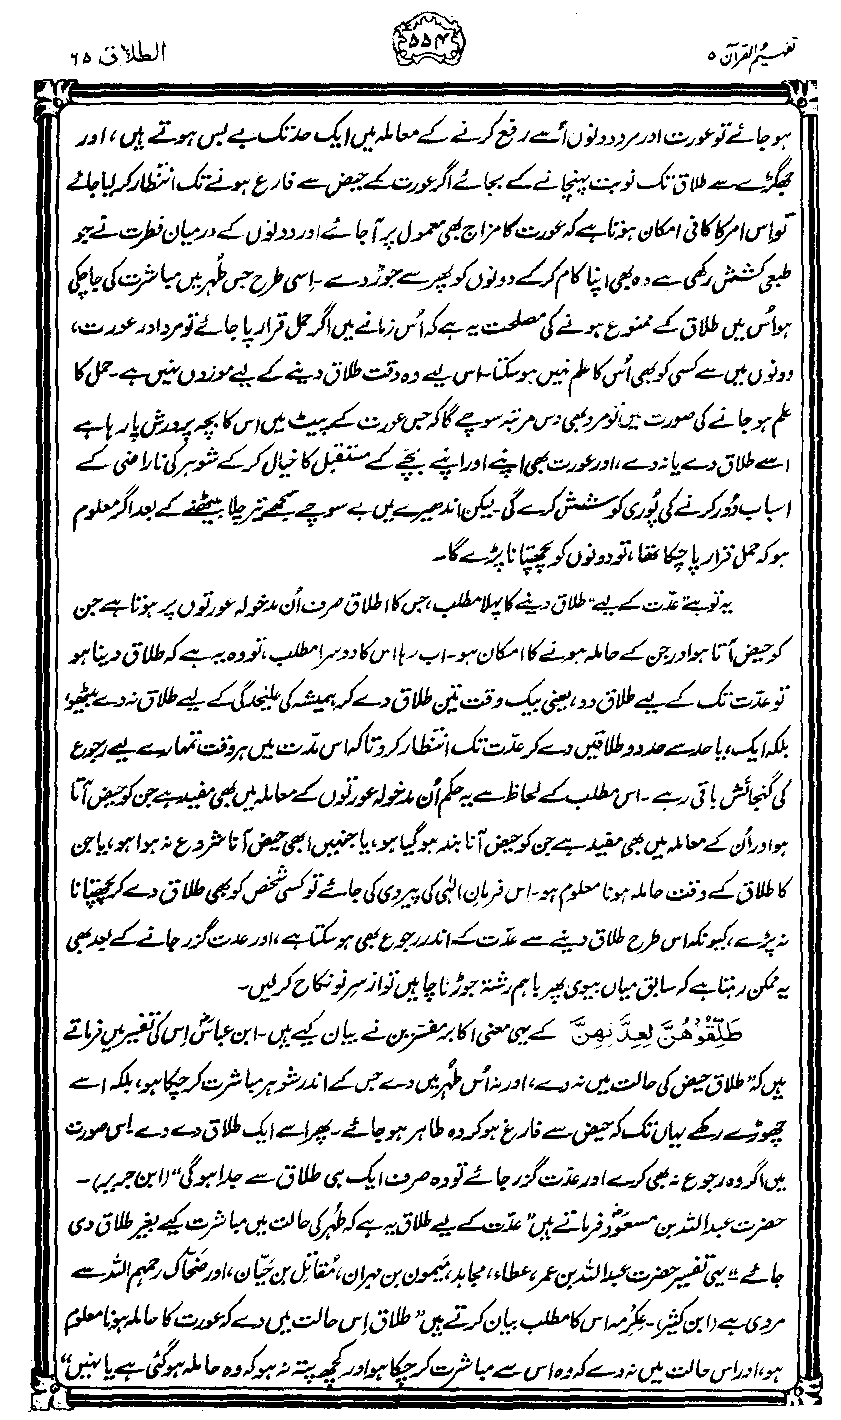 تفہیم القرآن ۵
۵۵۴
الطلاق ۶۵
ہو جائے تو عورت اور مرد دونوں اُسے رفع کرنے کے معاملہ میں ایک حد تک بے بس ہوتے ہیں، اور
جھگڑے سے طلاق تک نوبت پہنچانے کے بجائے اگر عورت کے حیض سے فارغ ہونے تک انتظار کر لیا جائے
تو اس امر کا کافی امکان ہوتا ہے کہ عورت کا مزاج بھی معمول پر آ جائے اور دونوں کے درمیان فطرت نے جو
طبعی کشش رکھی ہے وہ بھی اپنا کام کر کے دونوں کو پھر سے جوڑ دے۔ اِسی طرح جس طُہر میں مباشرت کی جا چکی
ہو اُس میں طلاق کے ممنوع ہونے کی مصلحت یہ ہے کہ اُس زمانے میں اگر حمل قرار پا جائے تو مرد اور عورت،
دونوں میں سے کسی کو بھی اُس کا علم نہیں ہو سکتا۔ اس لیے وہ وقت طلاق دینے کے لیے موزوں نہیں ہے۔ حمل کا
علم ہو جانے کی صورت میں تو مرد بھی دس مرتبہ سوچے گا کہ جس عورت کے پیٹ میں اس کا بچہ پرورش پا رہا ہے
اسے طلاق دے یا نہ دے، اور عورت بھی اپنے اور اپنے بچے کے مستقبل کا خیال کر کے شوہر کی ناراضی کے
اسباب دُور کرنے کی پُوری کوشش کرے گی۔ لیکن اندھیرے میں بے سوچے سمجھے تیر چلا بیٹھنے کے بعد اگر معلوم
ہو کہ حمل قرار پا چکا تھا، تو دونوں کو پچھتانا پڑے گا۔
یہ تو ہے "عدّت کے لیے" طلاق دینے کا پہلا مطلب، جس کا اطلاق صرف اُن مدخولہ عورتوں پر ہوتا ہے جن
کو حیض آتا ہو اور جن کے حاملہ ہونے کا امکان ہو۔ اب رہا اس کا دوسرا مطلب، تو وہ یہ ہے کہ طلاق دینا ہو
تو عدّت تک کے لیے طلاق دو، یعنی بیک وقت تین طلاق دے کر ہمیشہ کی علیٰحدگی کے لیے طلاق نہ دے بیٹھو،
بلکہ ایک، یا حد سے حد دو طلاقیں دے کر عدّت تک انتظار کرو تاکہ اس مدّت میں ہر وقت تمہارے لیے رجوع
کی گنجائش باقی رہے۔ اس مطلب کے لحاظ سے یہ حکم اُن مدخولہ عورتوں کے معاملہ میں بھی مفید ہے جن کو حیض آتا
ہو اور اُن کے معاملہ میں بھی مفید ہے جن کو حیض آنا بند ہو گیا ہو، یا جنہیں ابھی حیض آنا شروع نہ ہوا ہو، یا جن
کا طلاق کے وقت حاملہ ہونا معلوم ہو۔ اس فرمانِ الٰہی کی پیروی کی جائے تو کسی شخص کو بھی طلاق دے کر پچھتانا
نہ پڑے، کیونکہ اس طرح طلاق دینے سے عدّت کے اندر رجوع بھی ہو سکتا ہے، اور عدت گزر جانے کے بعد بھی
یہ ممکن رہتا ہے کہ سابق میاں بیوی پھر باہم رشتہ جوڑنا چاہیں تو از سرِ نو نکاح کر لیں۔
طَلِّقُوْهُنَّ لِعِدَّتِهِنَّ کے یہی معنی اکابر مفسرین نے بیان کیے ہیں۔ ابن عباسؓ اِس کی تفسیر میں فرماتے
ہیں کہ "طلاق حیض کی حالت میں نہ دے، اور نہ اُس طُہر میں دے جس کے اندر شوہر مباشرت کر چکا ہو، بلکہ اسے
چھوڑے رکھے یہاں تک کہ حیض سے فارغ ہو کر وہ طاہر ہو جائے۔ پھر اسے ایک طلاق دے دے۔ اِس صورت
میں اگر وہ رجوع نہ بھی کرے اور عدّت گزر جائے تو وہ صرف ایک ہی طلاق سے جدا ہو گی" (ابن جریر)۔
حضرت عبداللہ بن مسعودؓ فرماتے ہیں "عدّت کے لیے طلاق یہ ہے کہ طُہر کی حالت میں مباشرت کیے بغیر طلاق دی
جائے"۔ یہی تفسیر حضرت عبداللہ بن عمر، عطاء، مجاہد، میمون بن مہران، مُقاتل بن حَیّان، اور ضحّاک رحمہم اللہ سے
مروی ہے (ابن کثیر)۔ عِکرِمہ اس کا مطلب بیان کرتے ہیں "طلاق اِس حالت میں دے کہ عورت کا حاملہ ہونا معلوم
ہو، اور اس حالت میں نہ دے کہ وہ اس سے مباشرت کر چکا ہو اور کچھ پتہ نہ ہو کہ وہ حاملہ ہو گئی ہے یا نہیں"